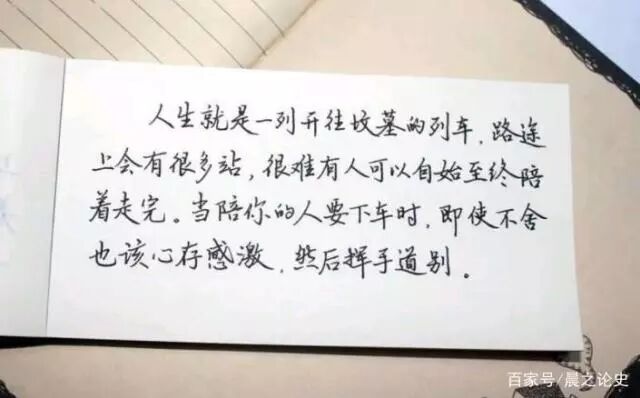 人生就是一列开往坟墓的列车，路途
上会有很多站，很难有人可以自始至终陪
着走完。当陪你的人要下车时，即使不舍
也该心存感激，然后挥手道别。
百家号/晨之论史